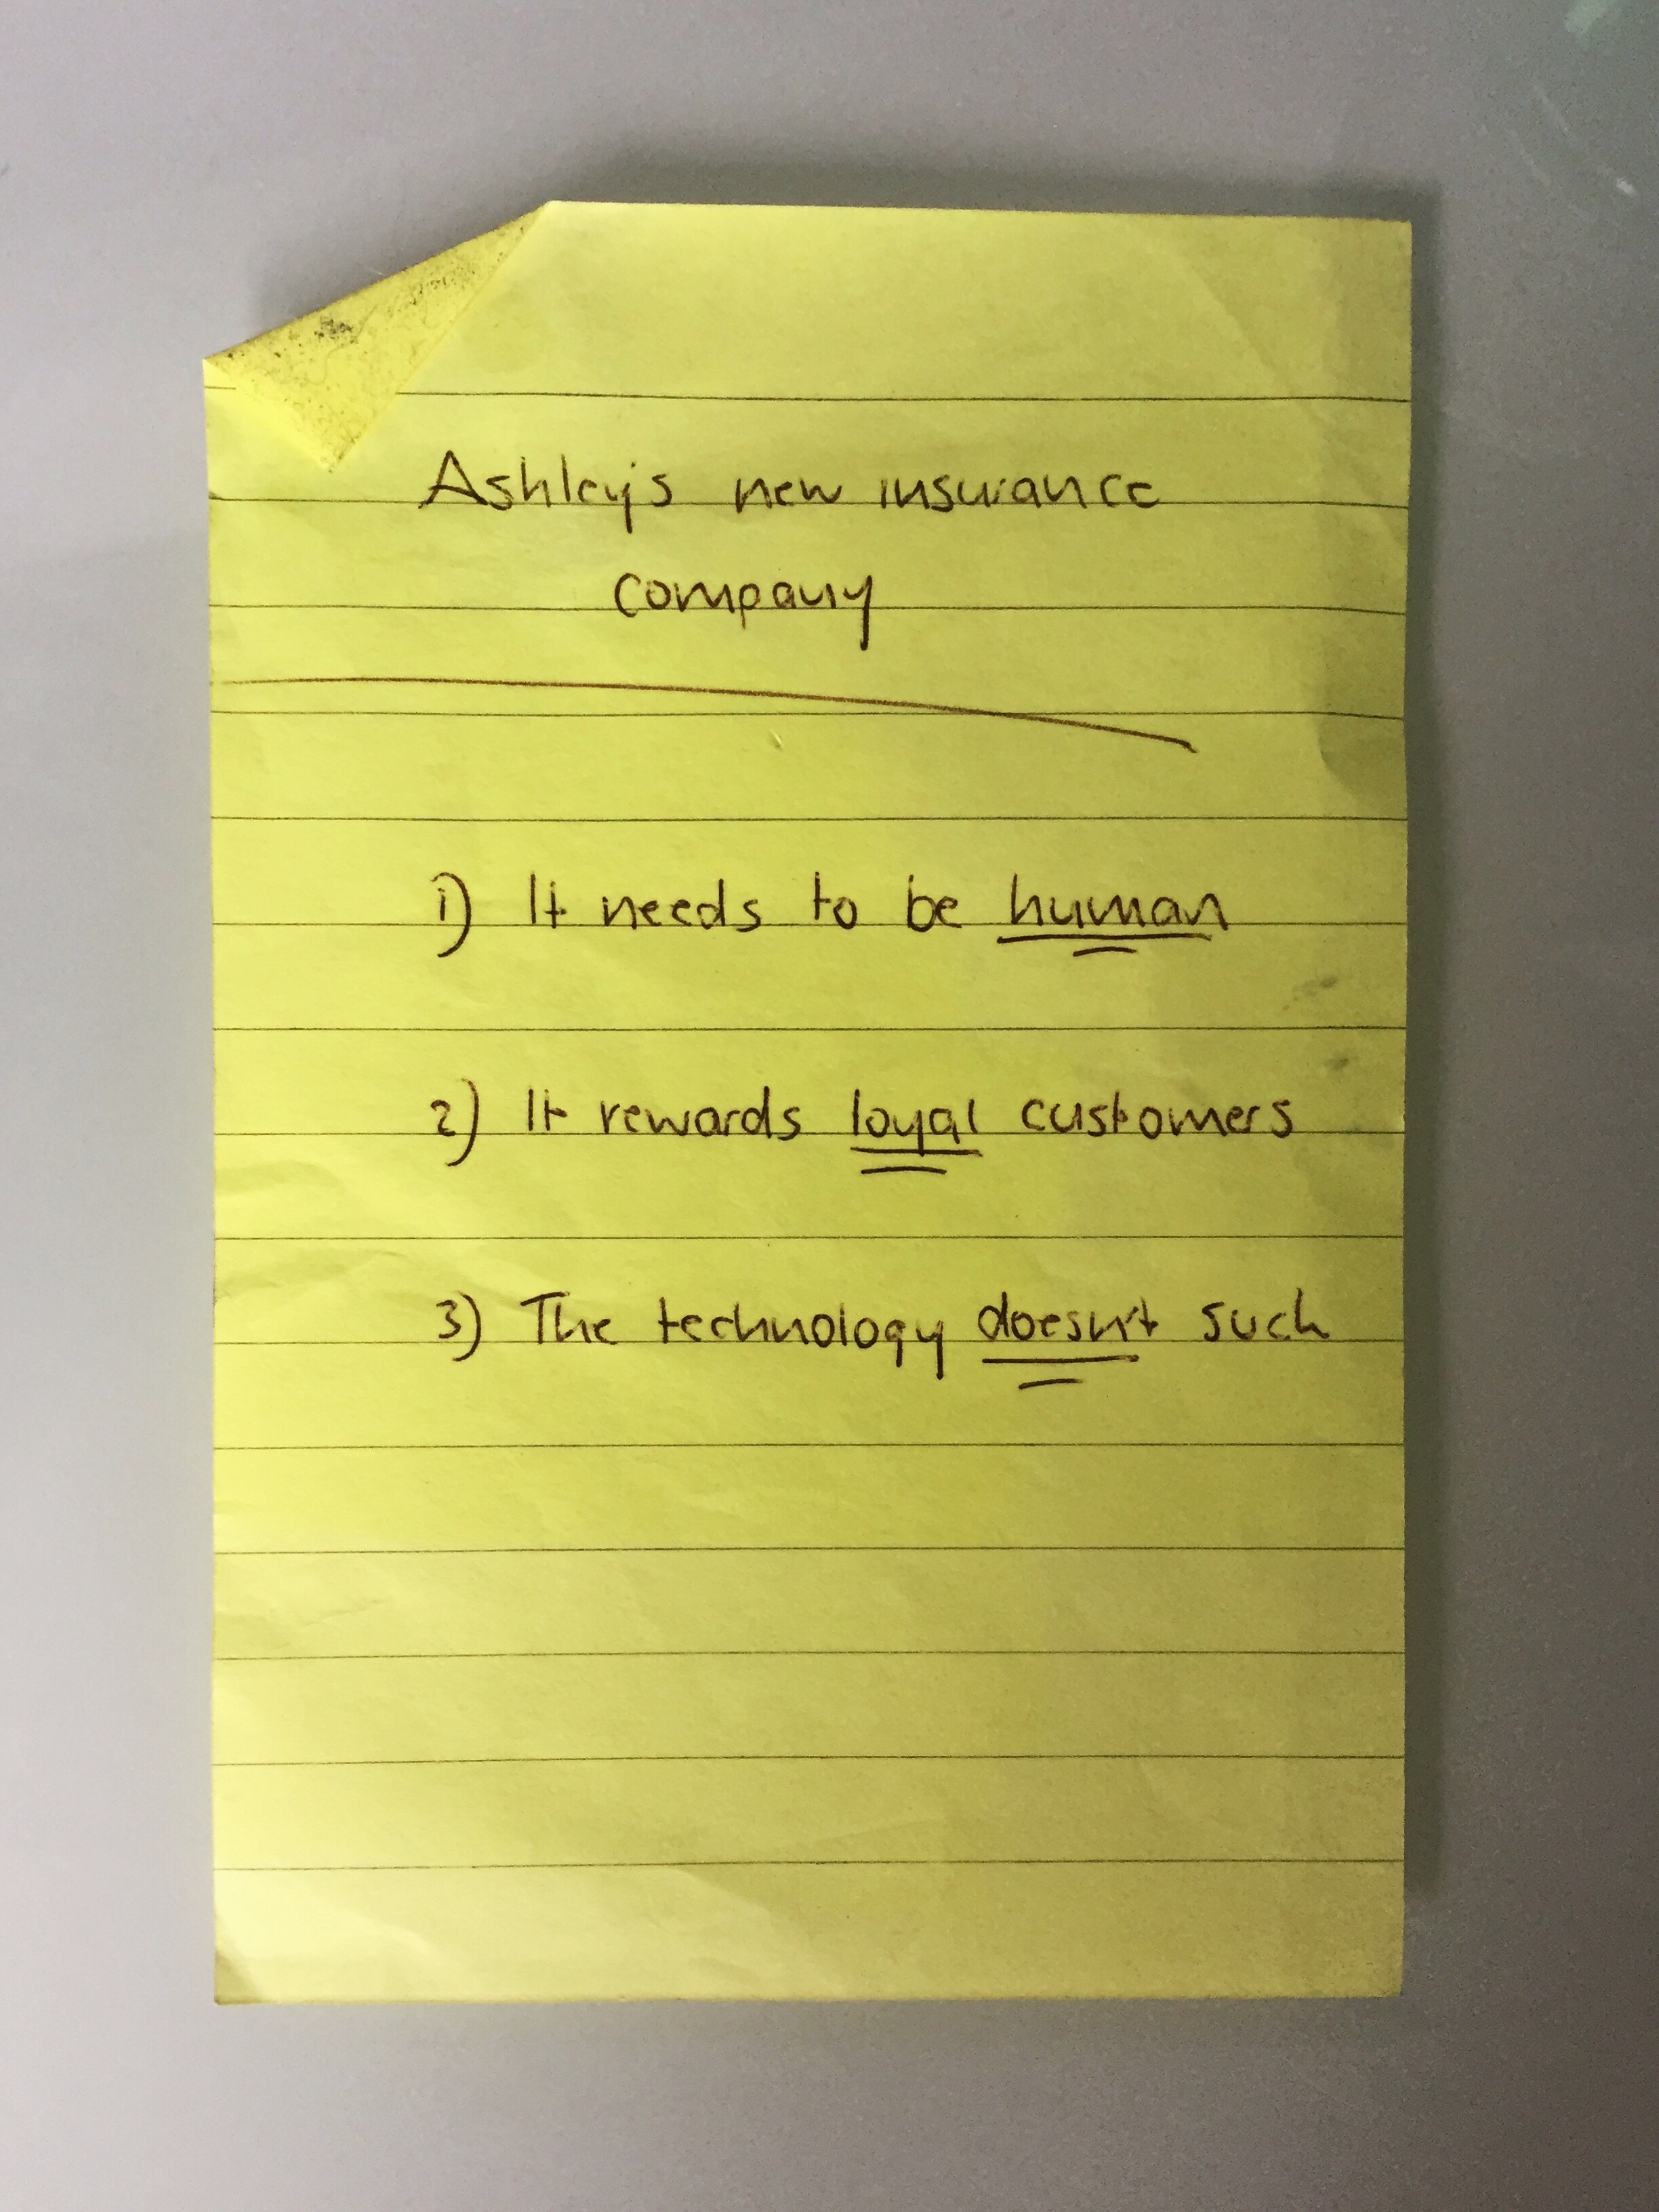 Ashley's new insurance
company
1) It needs to be human
2) It rewards loyal customers
3) The technology doesn't suck